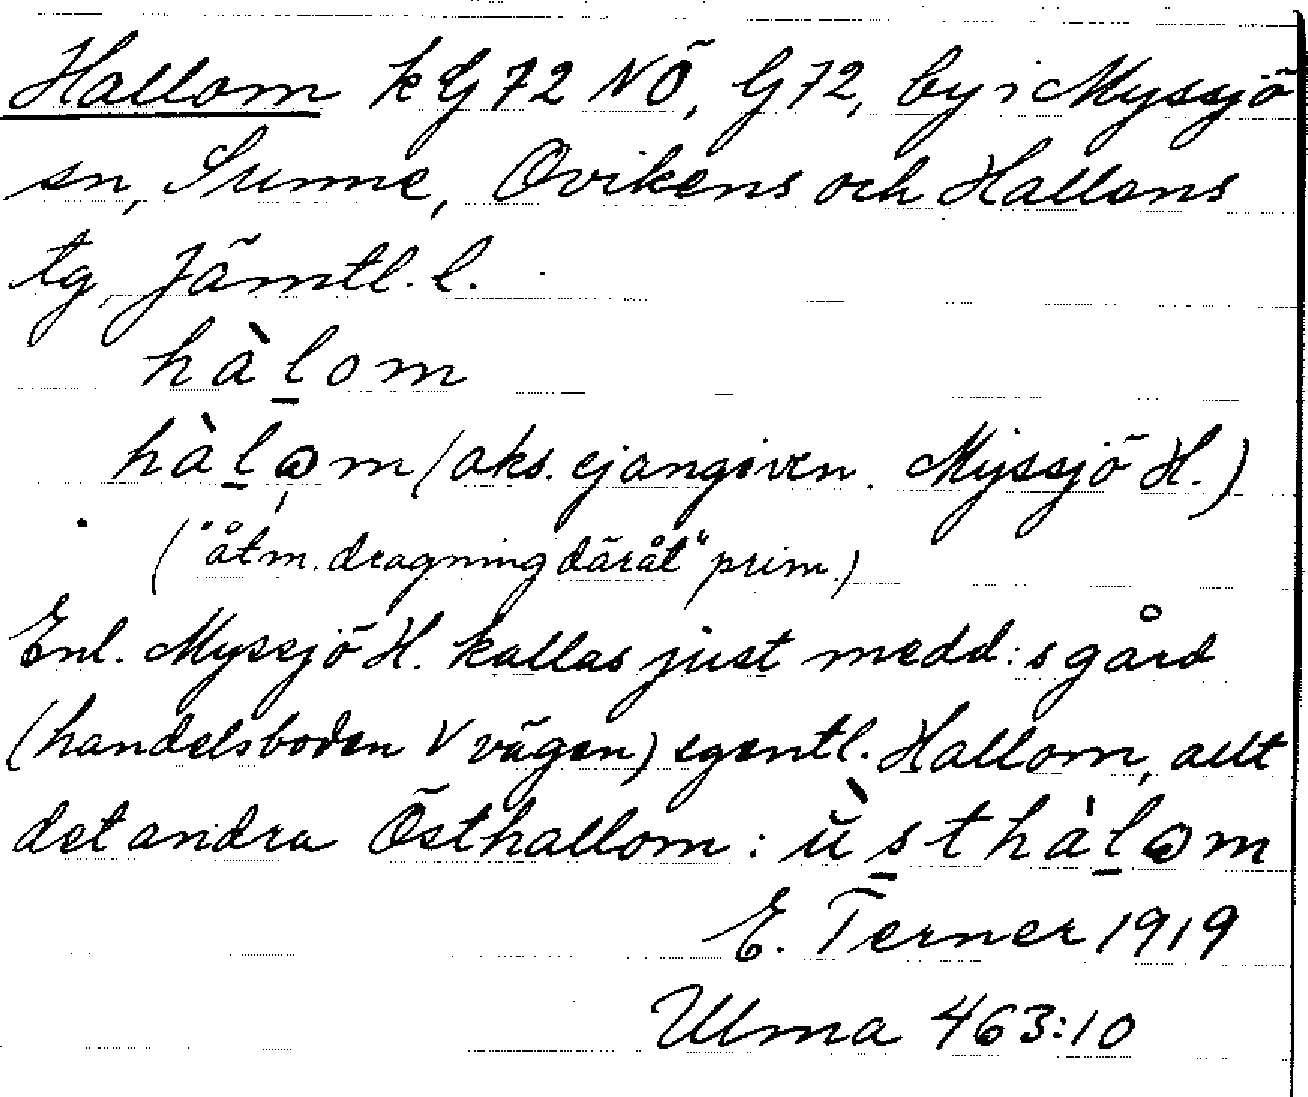 Hallom k G 72 NÖ, G 72, by i Myssjö
sn, Sunne, Ovikens och Hallens
tg Jämtl. l.
hàl̠om
hàl̠ꭃm (aks. ej angiven. Myssjö H.)
("åtm. dragning däråt" prim.)
Enl. Myssjö H. kallas just medd:s gård
(handelsboden V vägen) egentl. Hallom, allt
det andra Östhallom:
E. Terner 1919
Ulma 463:10